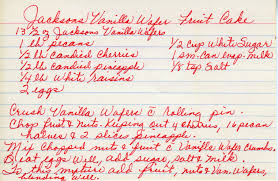 Jacksons Vanilla Wafer Fruit Cake
13 1/2 oz Jacksons Vanilla Wafers
1 lb pecans 1/2 cup White Sugar
1/2 lb candied Cherries 1 sm. can evap. milk
1/2 lb candied pineapple 1/8 tsp Salt
1/4 lb White raisins
2 eggs
Crush Vanilla Wafers c̄ rolling pin.
Chop fruit & nuts. Keeping out 4 cherries, 16 pecan
halves & 2 slices pineapple.
Mix Chopped nuts & fruit c̄ Vanilla Wafer crumbs.
Beat eggs Well, add sugar, salt & milk.
To this mixture add fruit, nuts & Van. Wafers,
blending Well.